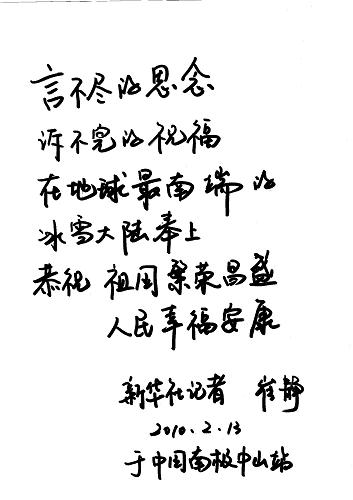 言不尽的思念
诉不完的祝福
在地球最南端的
冰雪大陆奉上
恭祝 祖国繁荣昌盛
人民幸福安康
新华社记者 崔静
2010.2.13
于中国南极中山站